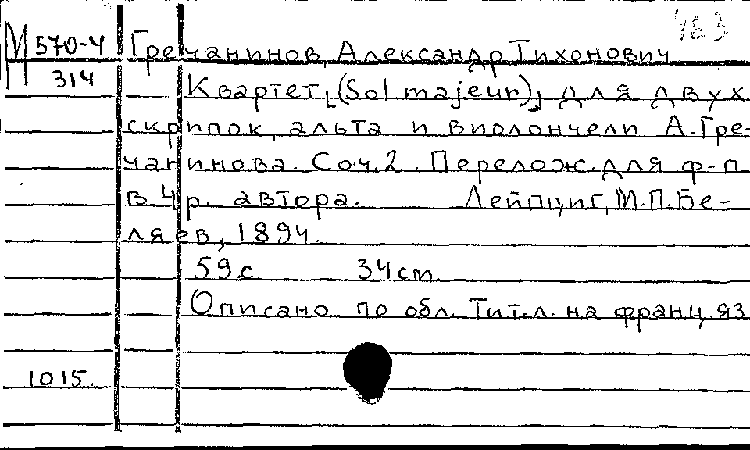 483
М 570-4 Гречанинов, Александр Тихонович
314
Квартет, (Sol majeur), для двух
скрипок, альта и виолончели А. Гре-
чанинова. Соч. 2. Перелож. для ф-п
в 4 р. автора. Лейпциг, М.П. Бе-
ляев, 1894.
59 с 34 cm
Описано по обл. Тит. л. на франц яз
1015.